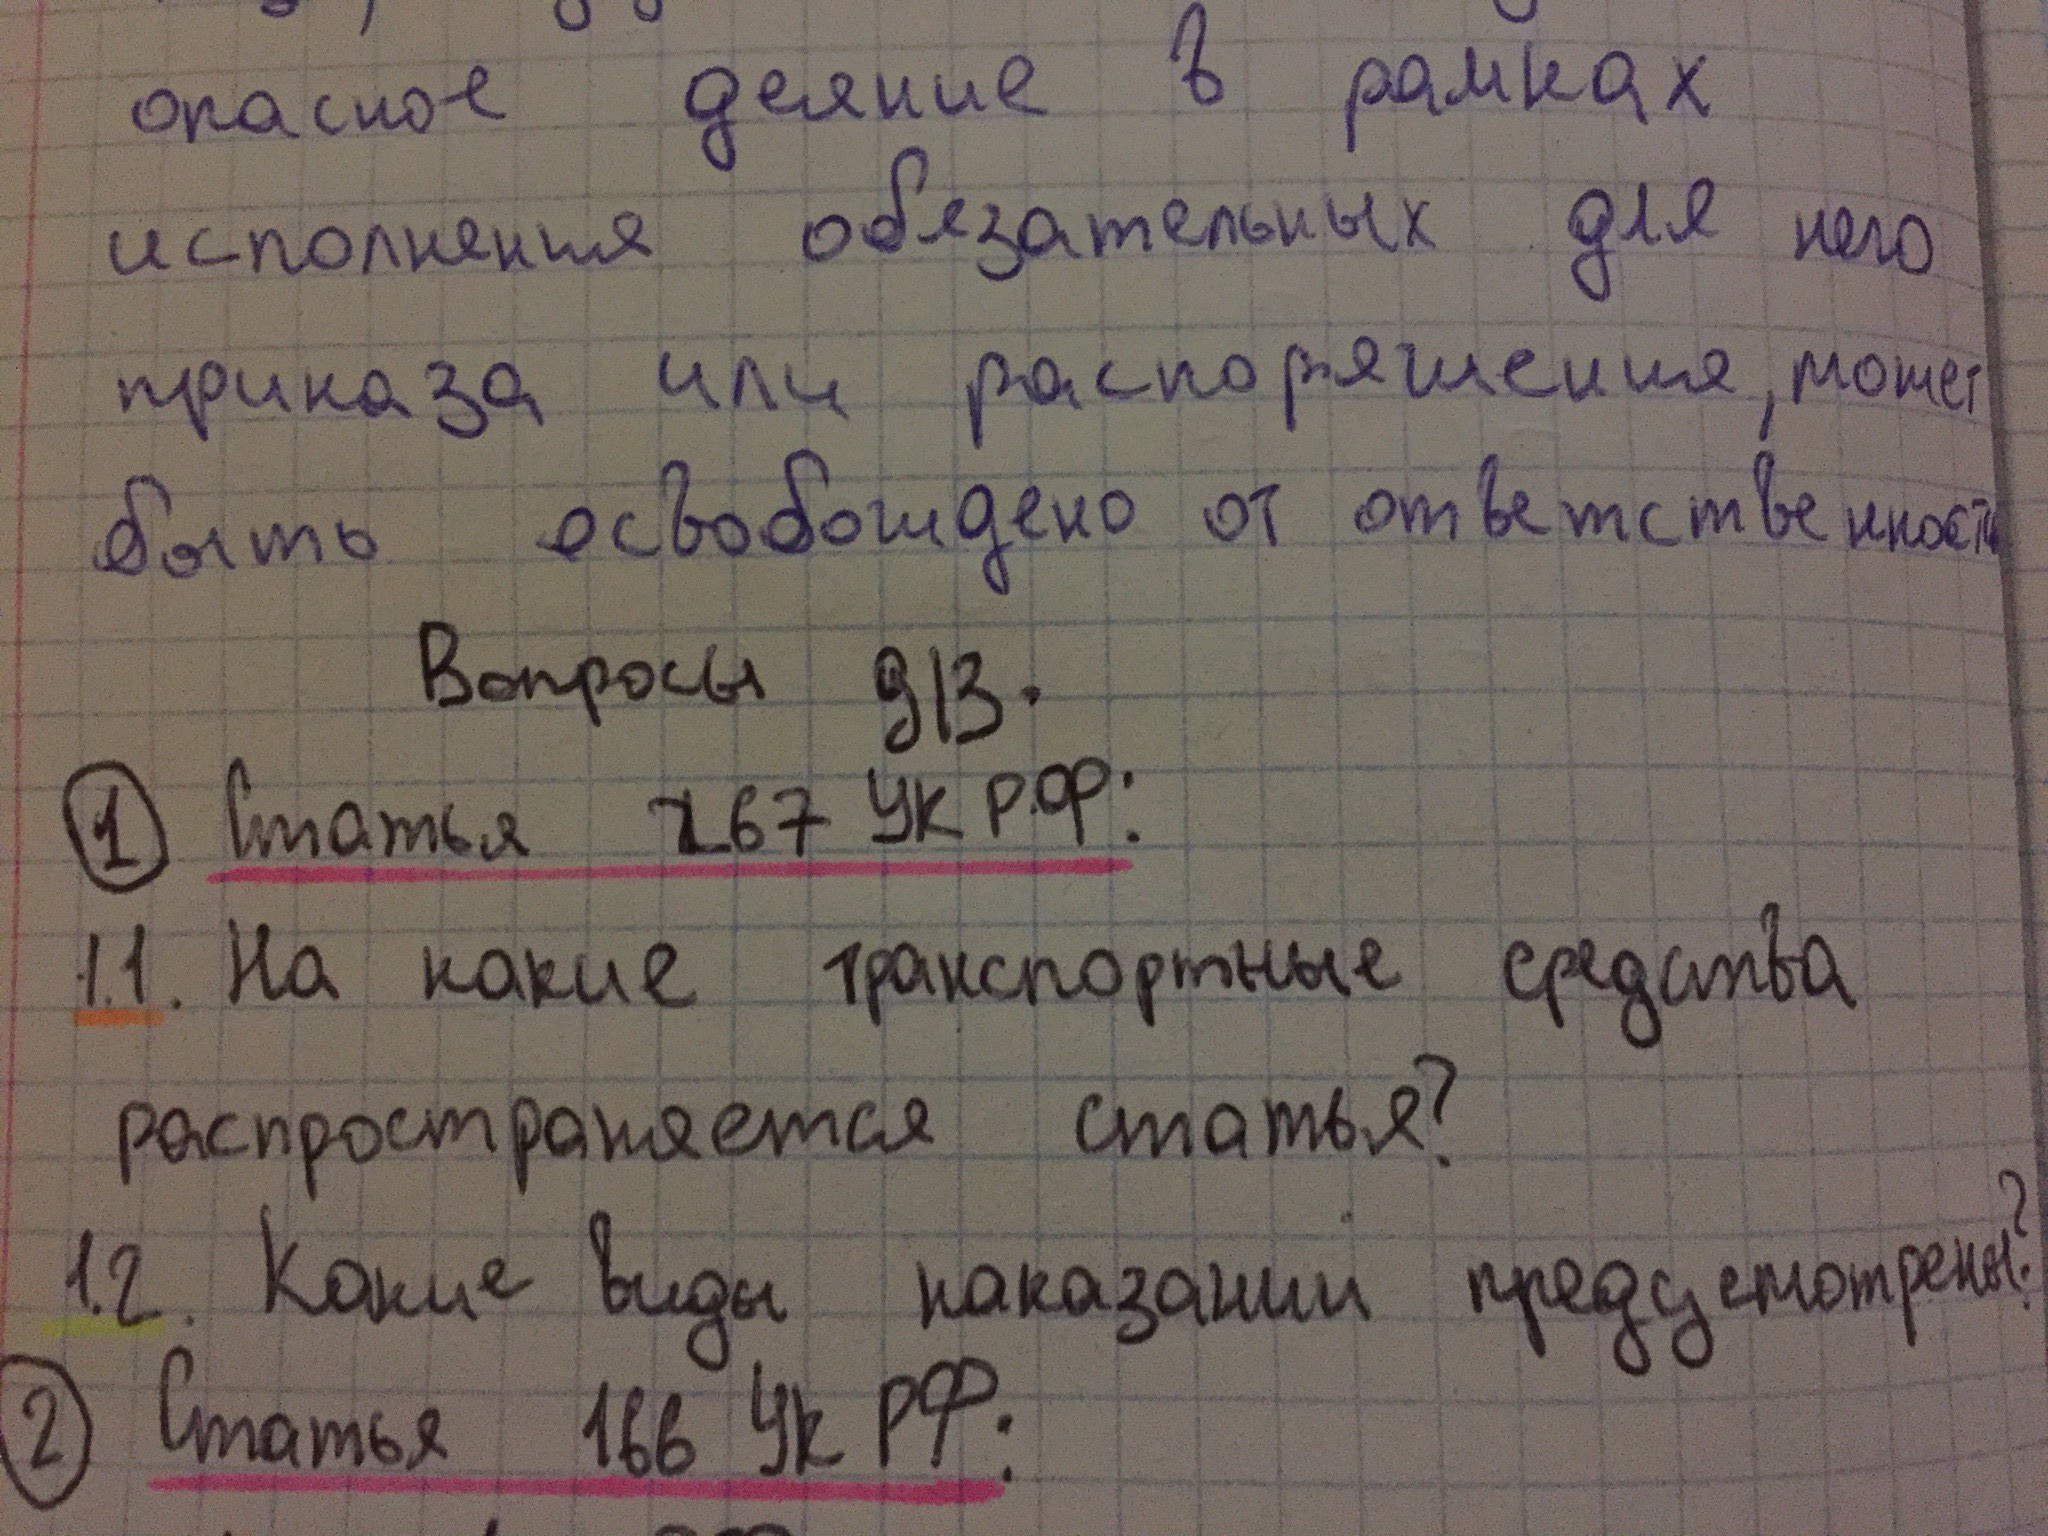 опасное деяние в рамках
исполнения обязательных для него
приказа или распоряжения, может
быть освобождено от ответственности
Вопросы д/з.
1 Статья 267 УК Р.Ф:
1.1. На какие транспортные средства
распространяется статья?
1.2. Какие виды наказании предусмотрены?
2 Статья 166 УК РФ: